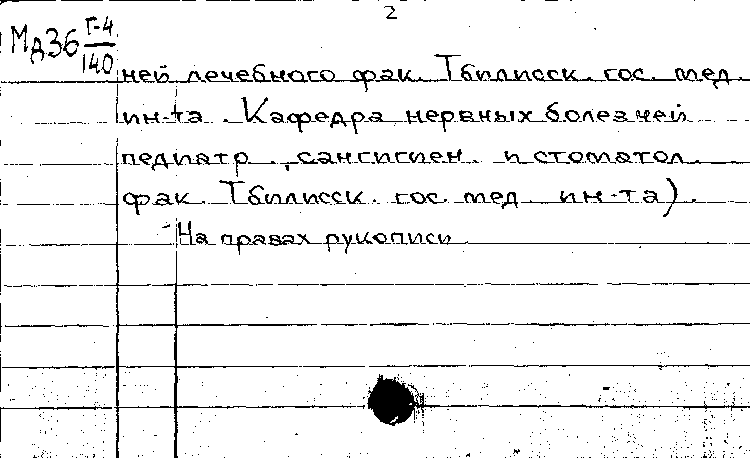 2
Мд36 Г-4
140
ней лечебного фак. Тбилисск. гос. мед.
ин-та. Кафедра нервных болезней
педиатр., сангигиен. и стоматол.
фак. Тбилисск. гос. мед. ин-та).
На правах рукописи